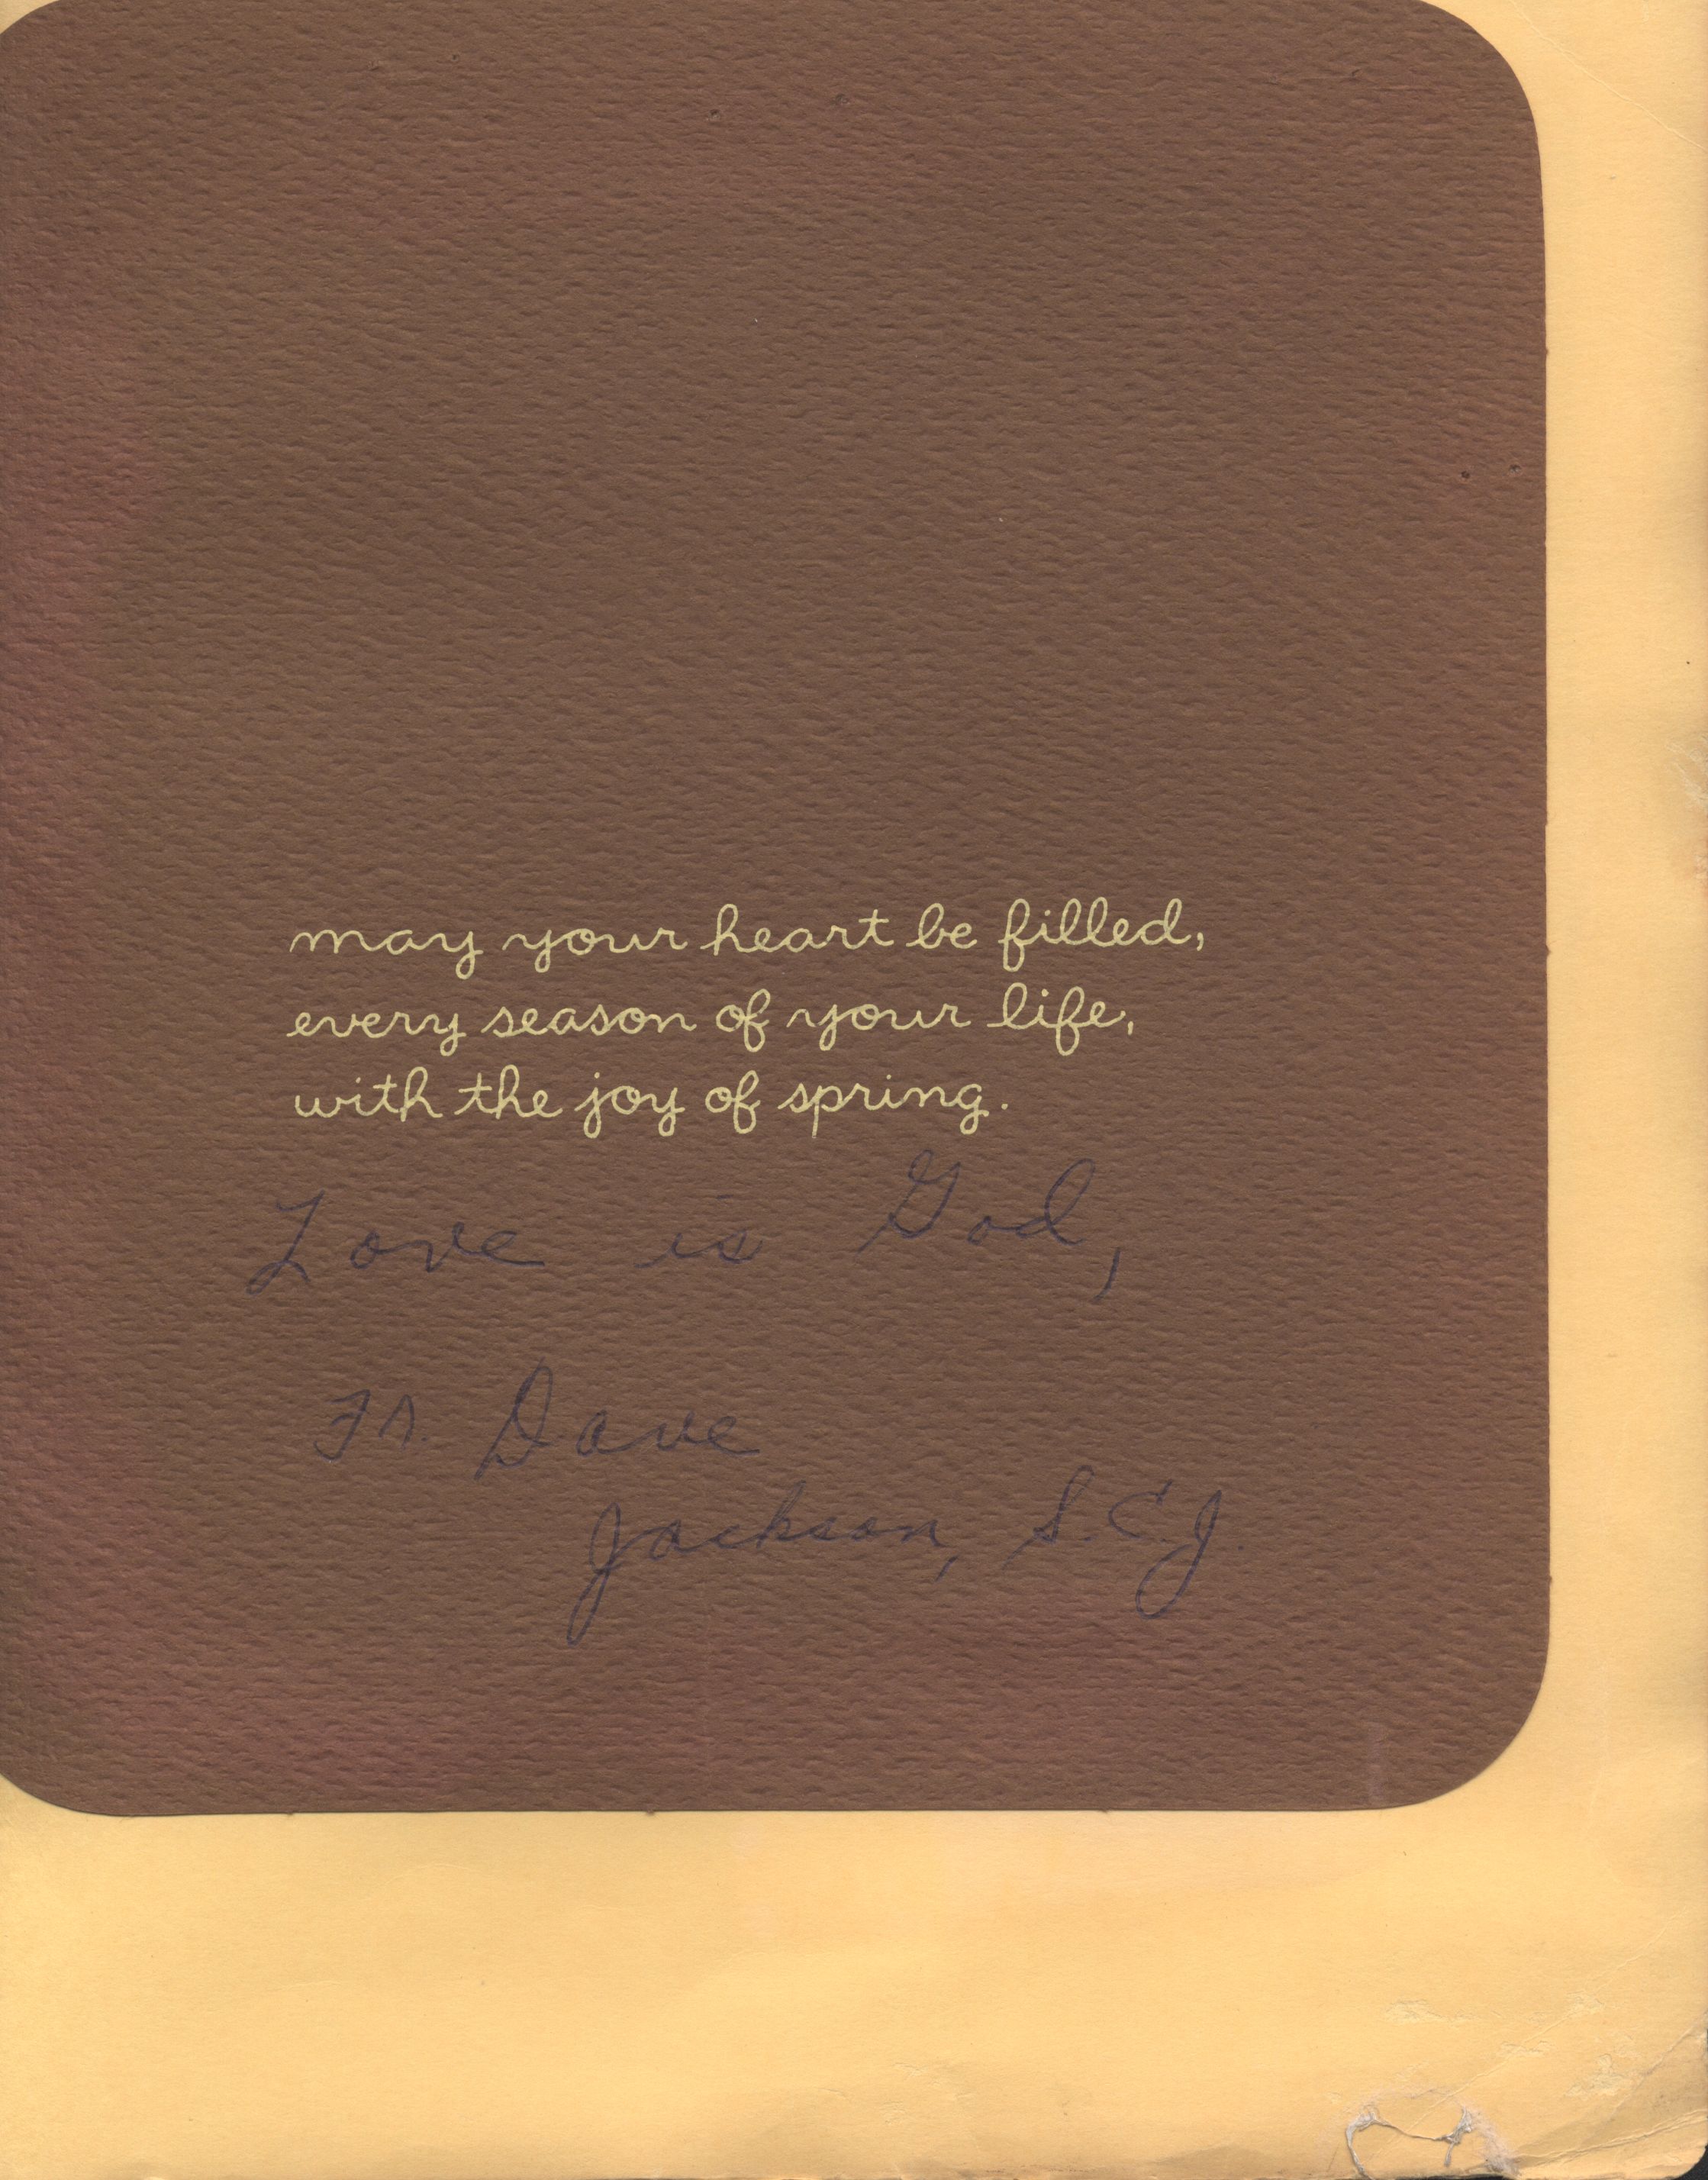 may your heart be filled,
every season of your life,
with the joy of spring.
Love is God,
Fr. Dave
Jackson, S.C.J.